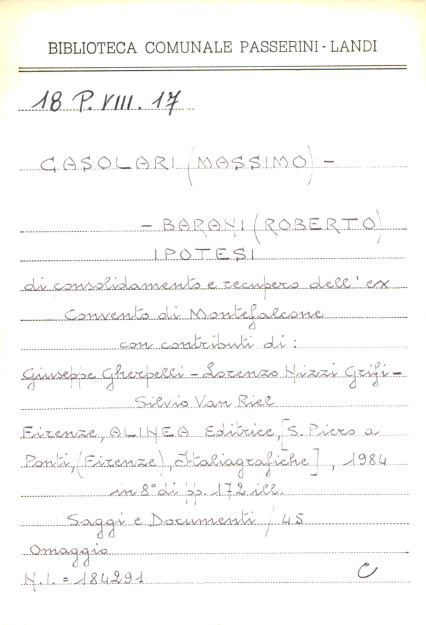 BIBLIOTECA COMUNALE PASSERINI - LANDI
18 P. VIII. 17
CASOLARI (MASSIMO) -
- BARANI (ROBERTO)
IPOTESI
di consolidamento e recupero dell' ex
Convento di Montefalcone
con contributi di :
Giuseppe Gherpelli - Lorenzo Nizzi Grifi -
Silvio Van Riel
Firenze, ALINEA Editrice, [S. Piero a
Ponti, (Firenze), Italiagrafiche] , 1984
in 8° di pp. 172 ill.
Saggi e Documenti / 45
Omaggio
N. I. = 184291 C